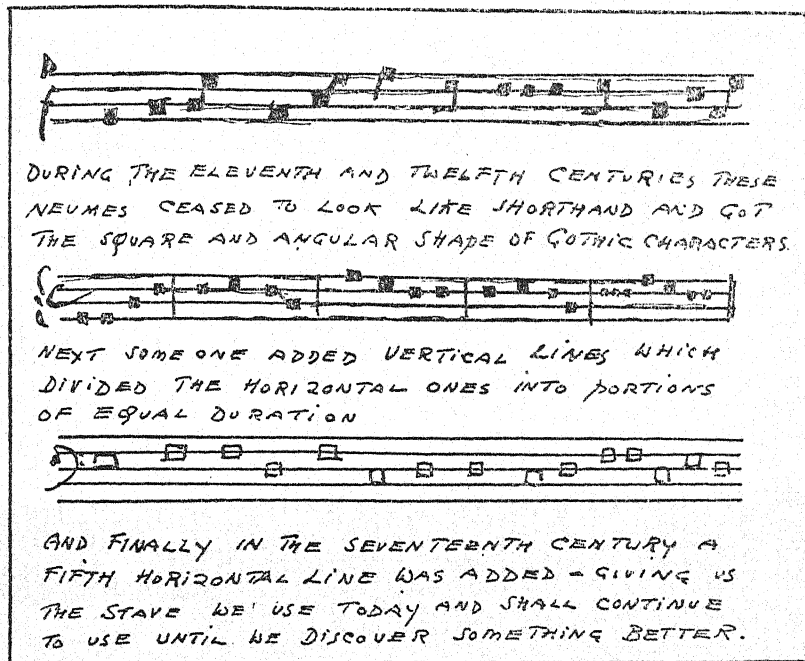 DURING THE ELEVENTH AND TWELFTH CENTURIES THESE
NEUMES CEASED TO LOOK LIKE SHORTHAND AND GOT
THE SQUARE AND ANGULAR SHAPE OF GOTHIC CHARACTERS.
NEXT SOMEONE ADDED VERTICAL LINES WHICH
DIVIDED THE HORIZONTAL ONES INTO PORTIONS
OF EQUAL DURATION
AND FINALLY IN THE SEVENTEENTH CENTURY A
FIFTH HORIZONTAL LINE WAS ADDED - GIVING US
THE STAVE WE USE TODAY AND SHALL CONTINUE
TO USE UNTIL WE DISCOVER SOMETHING BETTER.